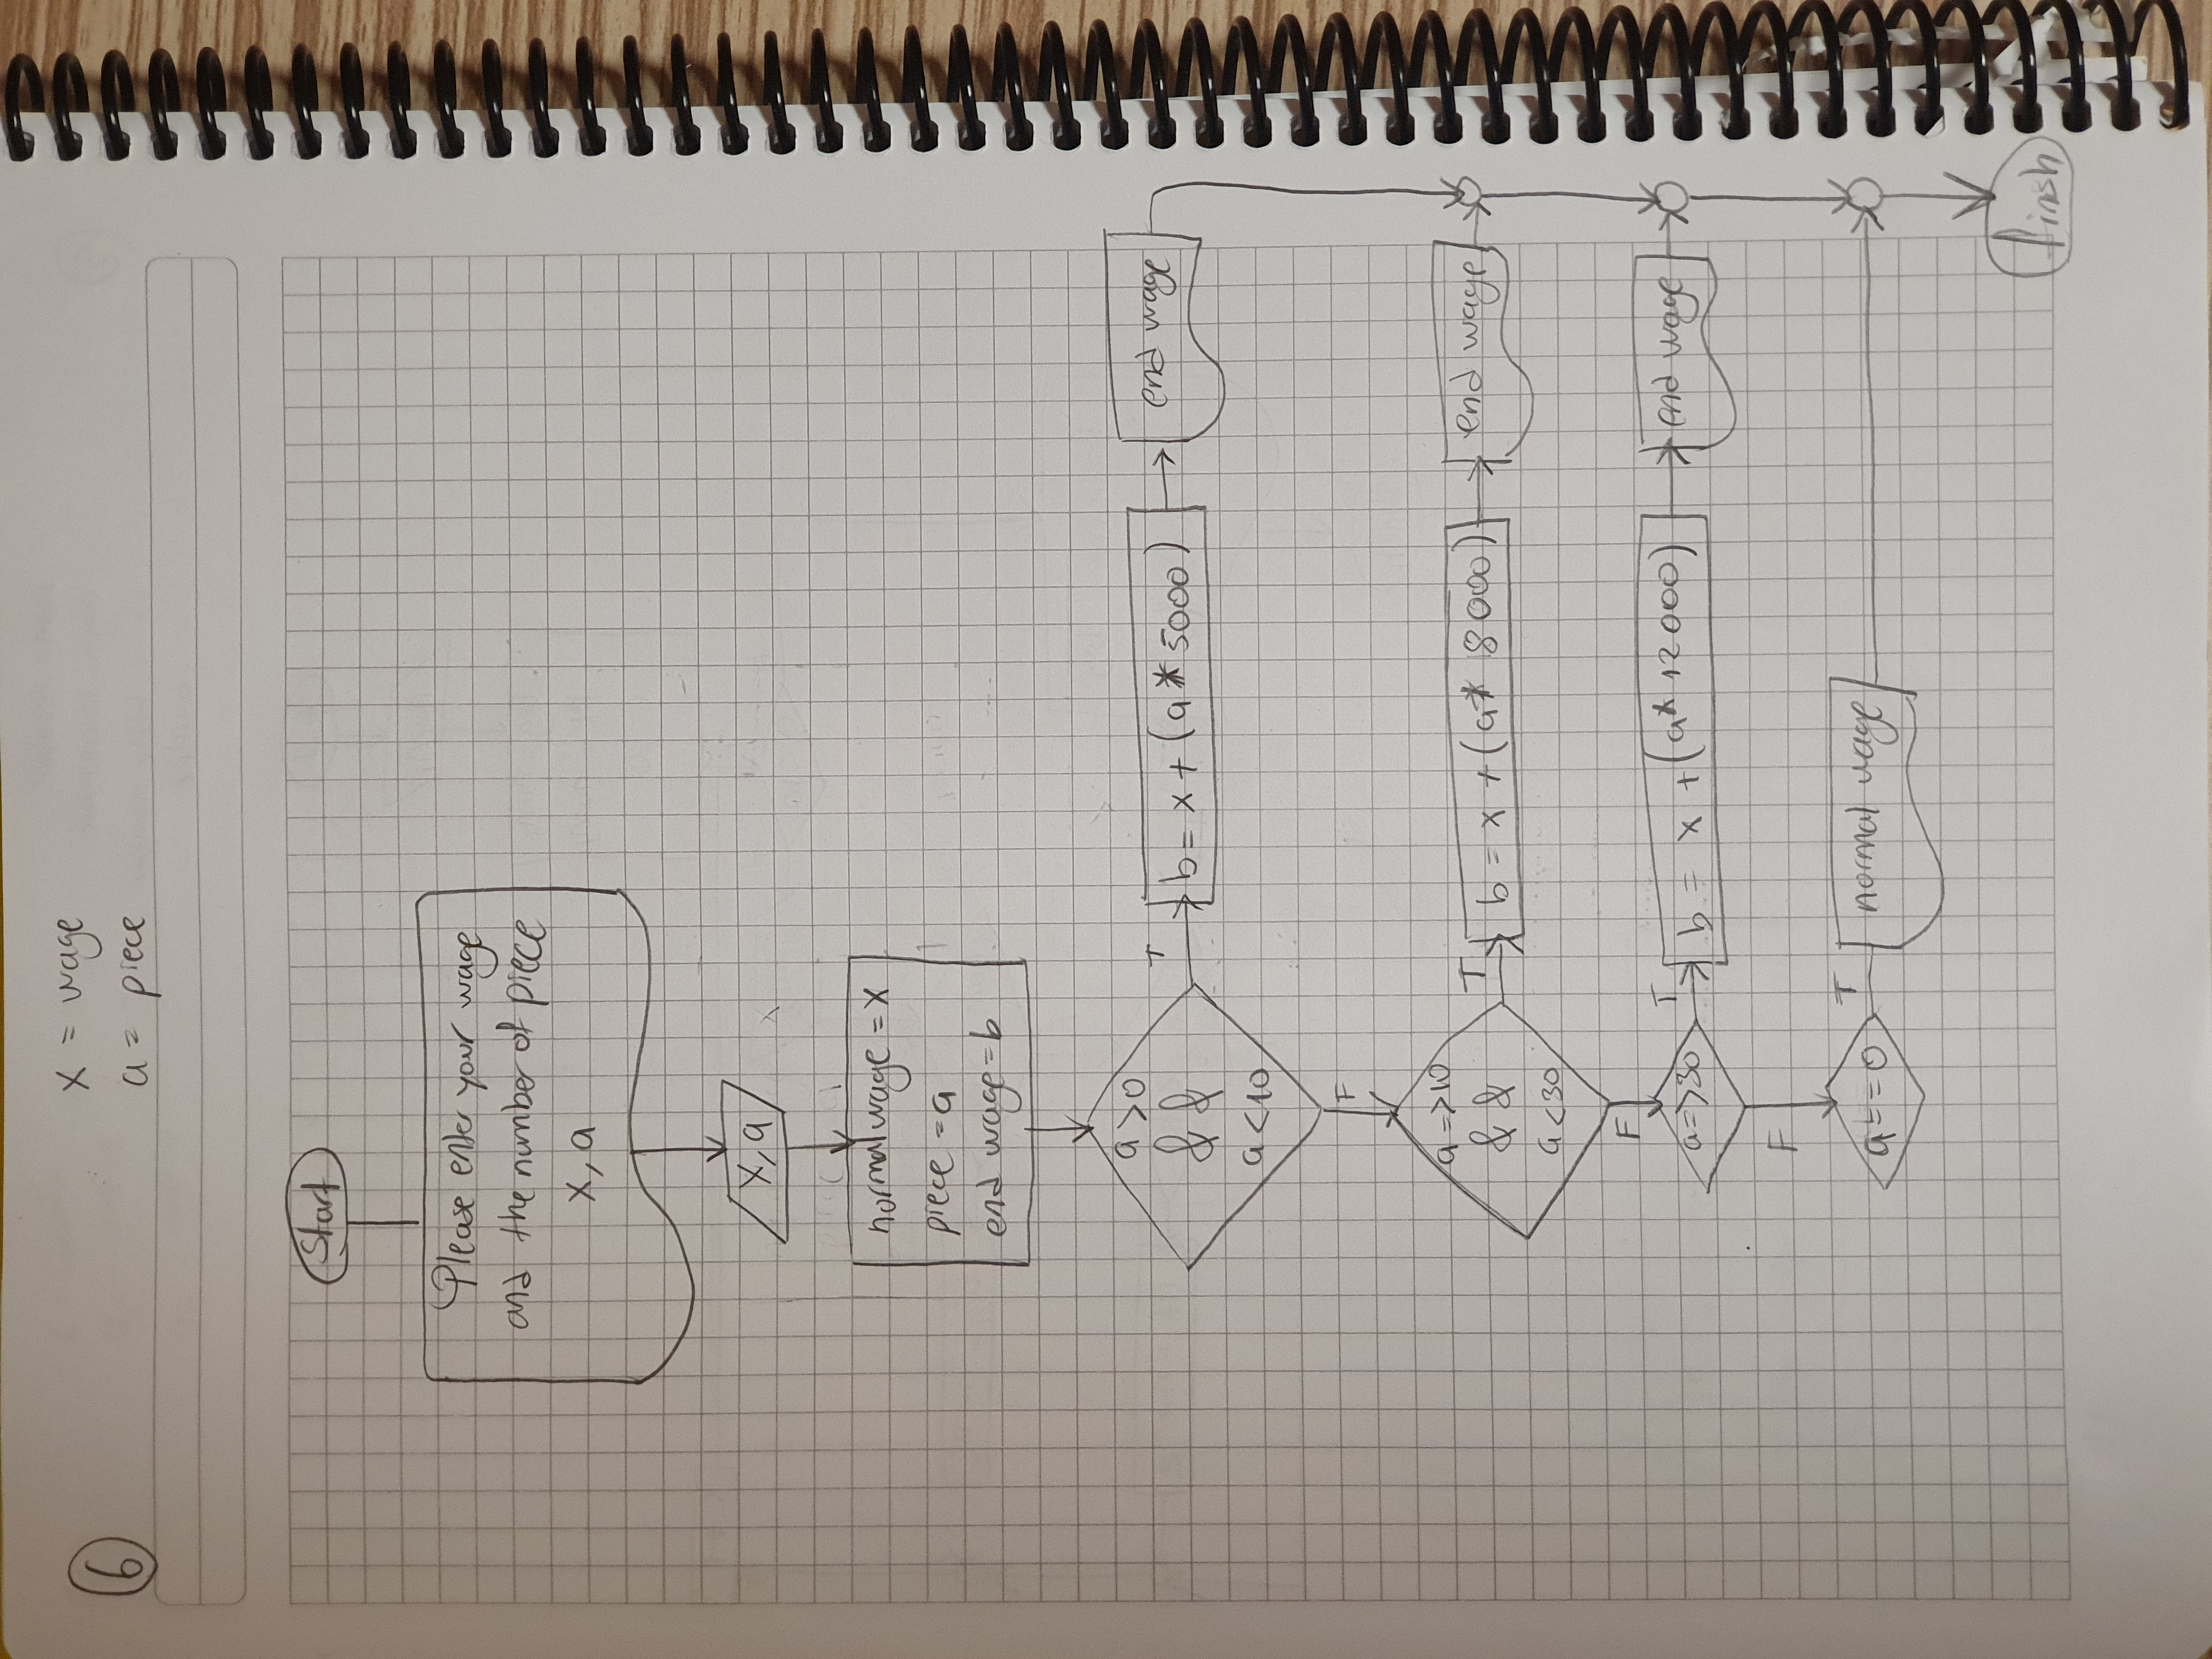 6
x = wage
a = piece
Start
Please enter your wage
and the number of piece
x, a
x, a
normal wage = x
piece = a
end wage = b
a > 0
&&
a < 10
T
b = x + (a * 5000)
end wage
F
a => 10
&&
a < 30
T
b = x + (a * 8000)
end wage
F
a => 30
T
b = x + (a * 12000)
end wage
F
a == 0
T
normal wage
finsh